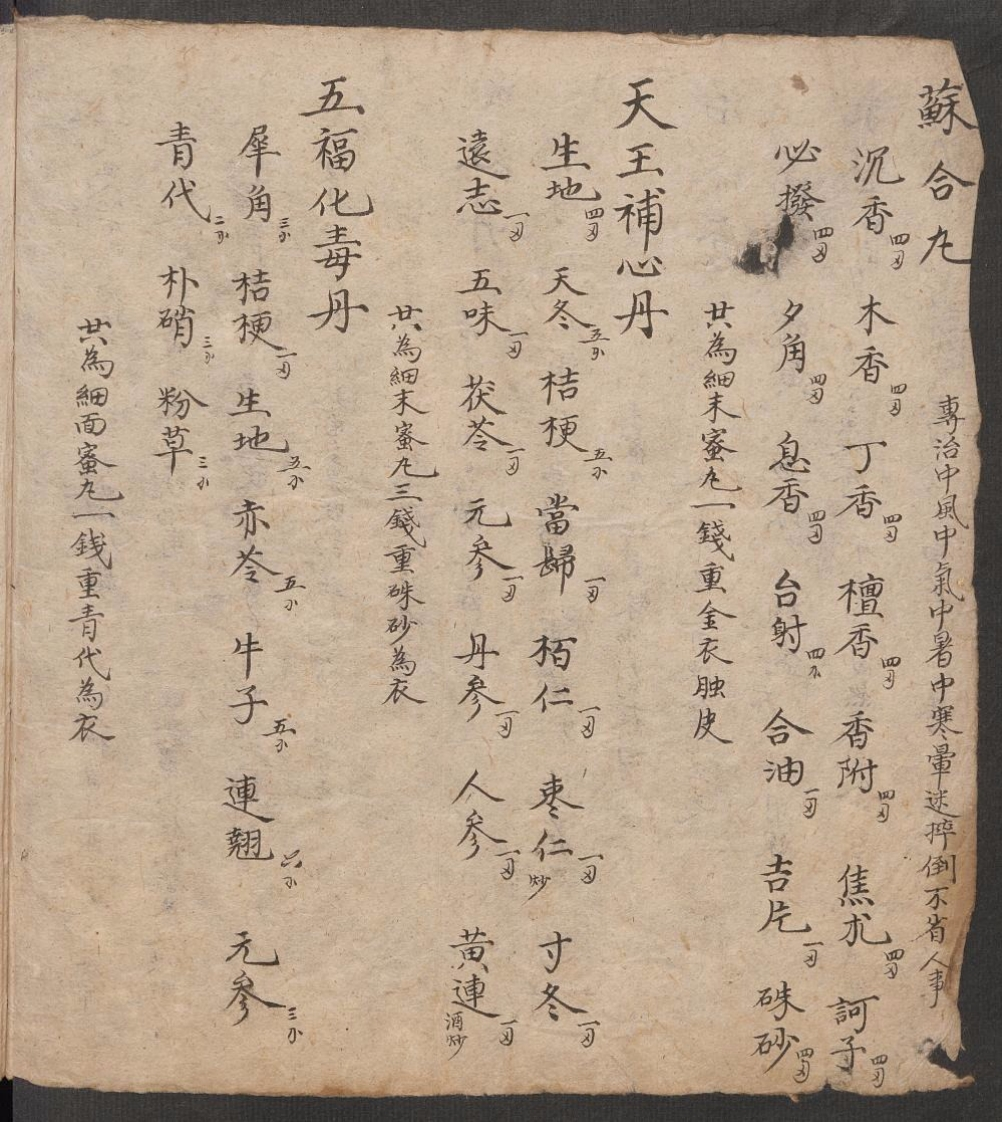 蘇合丸 專治中風中氣中暑中寒暈迷摔倒不省人事
沉香四刄 木香四刄 丁香四刄 檀香四刄 香附四刄 焦朮四刄 訶子四刄
必撥四刄 夕角四刄 息香四刄 台射四 合油一刄 吉片一刄 硃砂四刄
共為細末蜜丸一錢重金衣胑皮
天王補心丹
生地四刄 天冬五 桔梗五 當歸一刄 栢仁一刄 枣仁一刄炒 寸冬一刄
遠志一刄 五味一刄 茯苓一刄 元參一刄 丹參一刄 人參一刄 黃連一刄酒炒
共為細末蜜丸三錢重硃砂為衣
五福化毒丹
犀角三 桔梗一刄 生地五 赤苓五 牛子五 連翹六 元參三
青代二 朴硝三 粉草三
共為細面蜜丸一錢重青代為衣